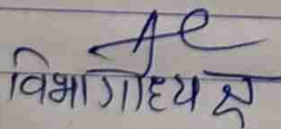 विभागाध्यक्ष